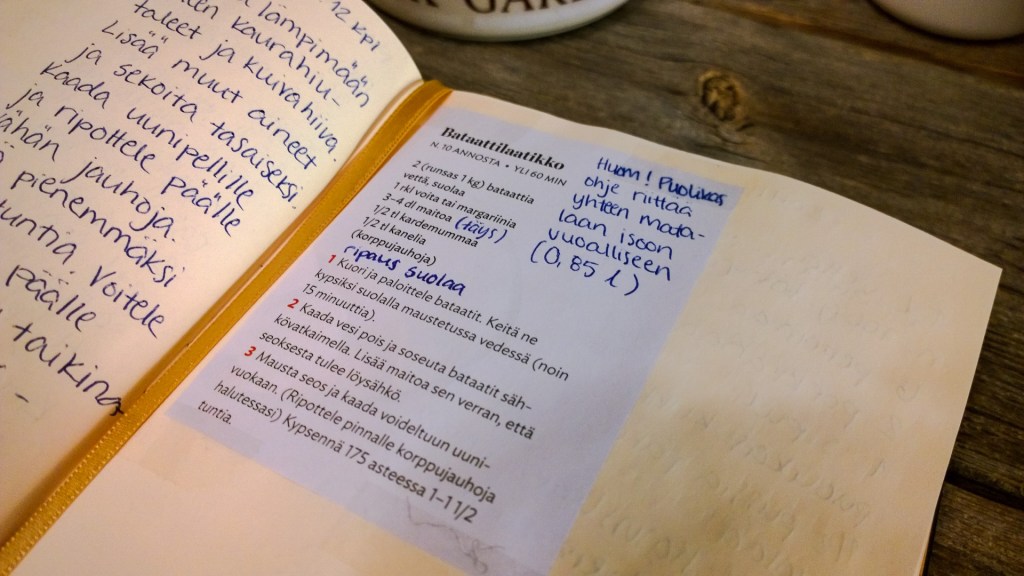 12 kpl
lämpimään
taleet ja kuivahiiva.
kaurahiu-
Lisää muut aineet
ja sekoita tasaiseksi.
Kaada uunipellille
ja ripottele päälle
vähän jauhoja.
pienemmäksi
tuntia. Voitele
päälle
taikina
Bataattilaatikko
N. 10 ANNOSTA • YLI 60 MIN
2 (runsas 1 kg) bataattia
vettä, suolaa
1 rkl voita tai margariinia
3–4 dl maitoa (täys)
1/2 tl kardemummaa
1/2 tl kanelia
(korppujauhoja)
ripaus suolaa
1 Kuori ja paloittele bataatit. Keitä ne
kypsiksi suolalla maustetussa vedessä (noin
15 minuuttia).
2 Kaada vesi pois ja soseuta bataatit säh-
kövatkaimella. Lisää maitoa sen verran, että
seoksesta tulee löysähkö.
3 Mausta seos ja kaada voideltuun uuni-
vuokaan. (Ripottele pinnalle korppujauhoja
halutessasi) Kypsennä 175 asteessa 1–1 1/2
tuntia.
Huom! Puolikas
ohje riittää
yhteen mata-
laan isoon
vuoalliseen
(0,85 l)